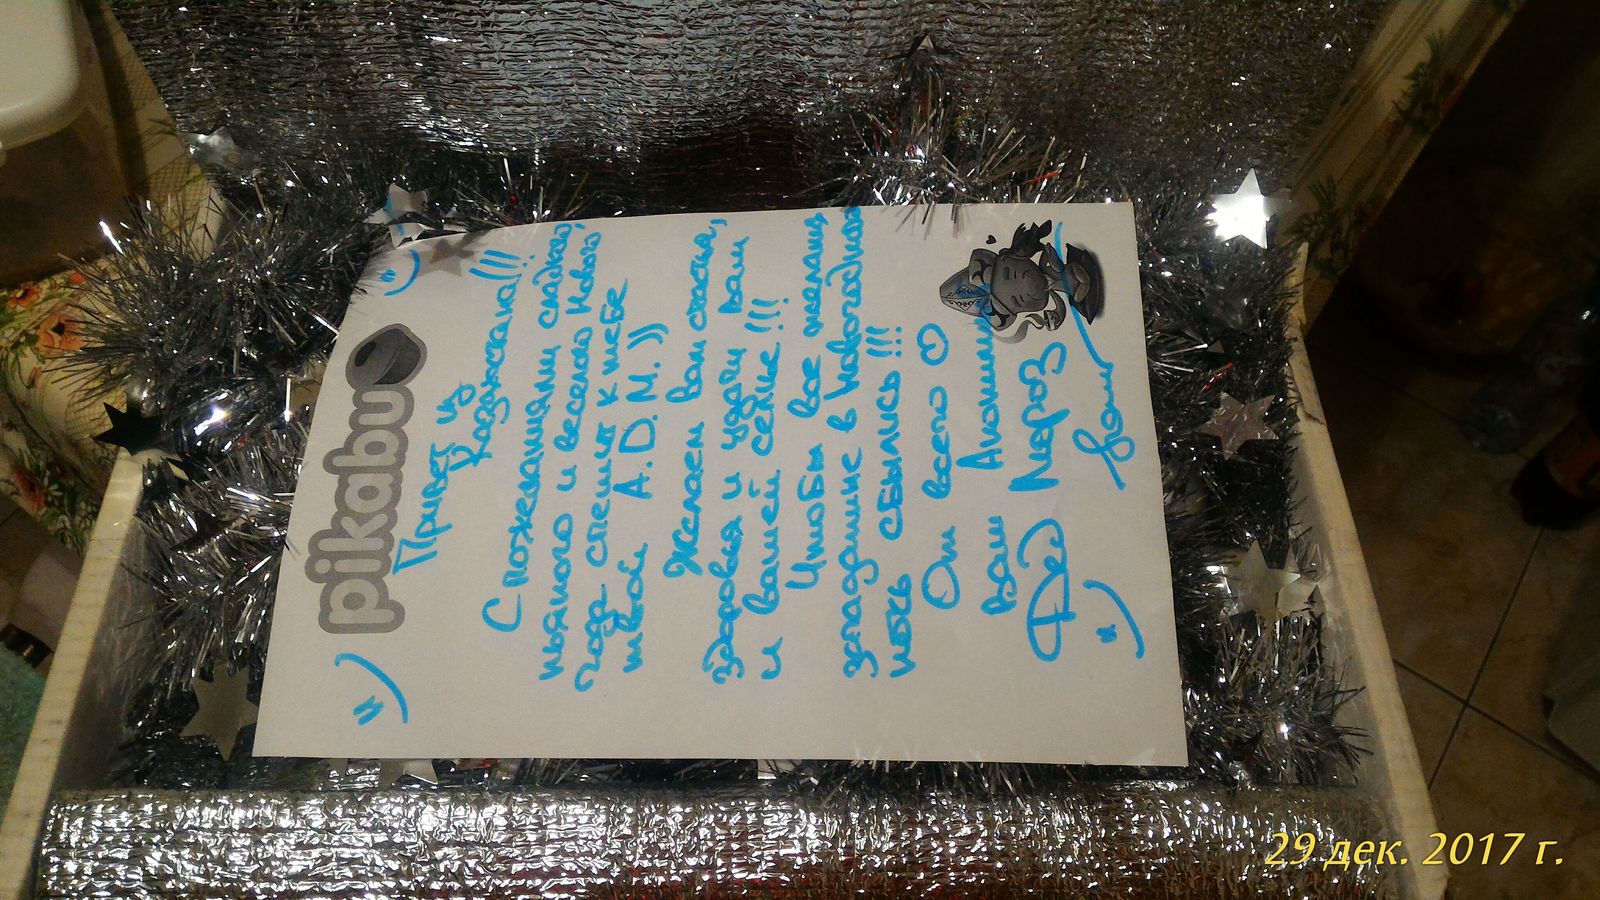 pikabu
Привет из
Казахстана!!!
С пожеланиями сладкого,
пьяного и веселого Нового
года- спешит к тебе
твой A.D.M.))
Желаем вам счастья,
здоровья и удачи вам
и вашей семье!!!
Чтобы все желания
загаданные в Новогоднюю
ночь сбылись!!!
От всего
ваш Анонимный
Дед Мороз
29 дек. 2017 г.